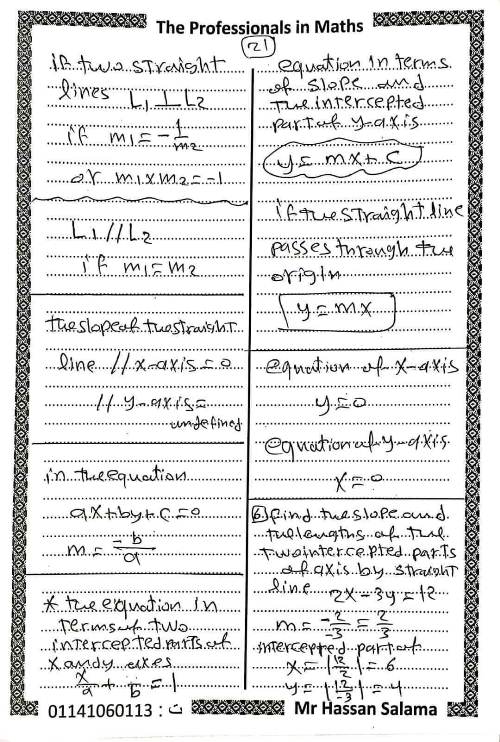 The Professionals in Maths
21
if two straight
lines L1 ⊥ L2
if m1 = -1/m2
or m1 x m2 = -1
L1 // L2
if m1 = m2
the slope of the straight
line // x-axis = 0
// y-axis =
undefined
in the equation
ax + by + c = 0
m = -b/a
* the equation in
terms of two
intercepted parts of
x and y axes
x/a + y/b = 1
equation in terms
of slope and
the intercepted
part of y-axis
y = mx + c
if the straight line
passes through the
origin
y = mx
equation of x-axis
y = 0
equation of y-axis
x = 0
6 find the slope and
the lengths of the
two intercepted parts
of axis by straight
line 2x - 3y = 12
m = -2/-3 = 2/3
intercepted part of
x = |12/2| = 6
y = |12/-3| = 4
01141060113 : ت
Mr Hassan Salama